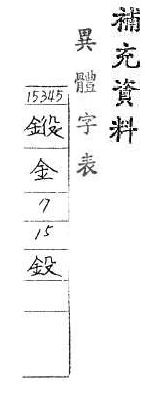 補充資料
異體字表
15345
金
7
15
鈠